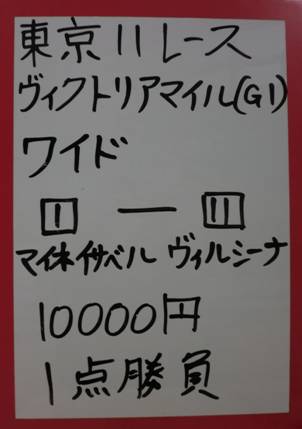 東京11レース
ヴィクトリアマイル(G1)
ワイド
1 ー 11
マイネイサベル ヴィルシーナ
10000円
1点勝負